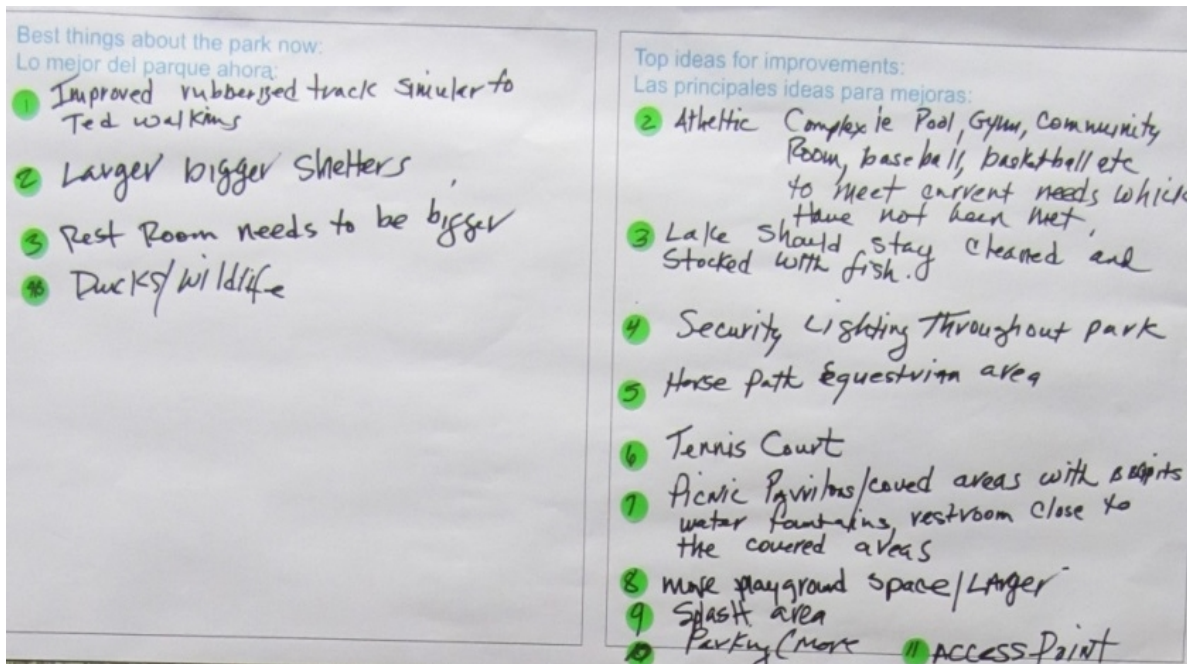 Best things about the park now:
Lo mejor del parque ahora:
1 Improved rubberized track simuler to
Ted walkins
2 Larger bigger shelters
3 Rest Room needs to be bigger
Ducks/wildlife
Top ideas for improvements:
Las principales ideas para mejoras:
2 Atheltic Complex ie Pool, Gym, Community
Room, baseball, basketball etc
to meet current needs which
Have not been met,
3 Lake should stay cleaned and
stocked with fish.
4 Security Lighting Throughout park
5 Horse path Equestrian area
6 Tennis Court
7 Picnic Pavvilons/coved areas with
water fountains, restroom close to
the covered areas
8 more playground space/LArger
9 Splash area
10 Parking/more 11 ACCESS Point